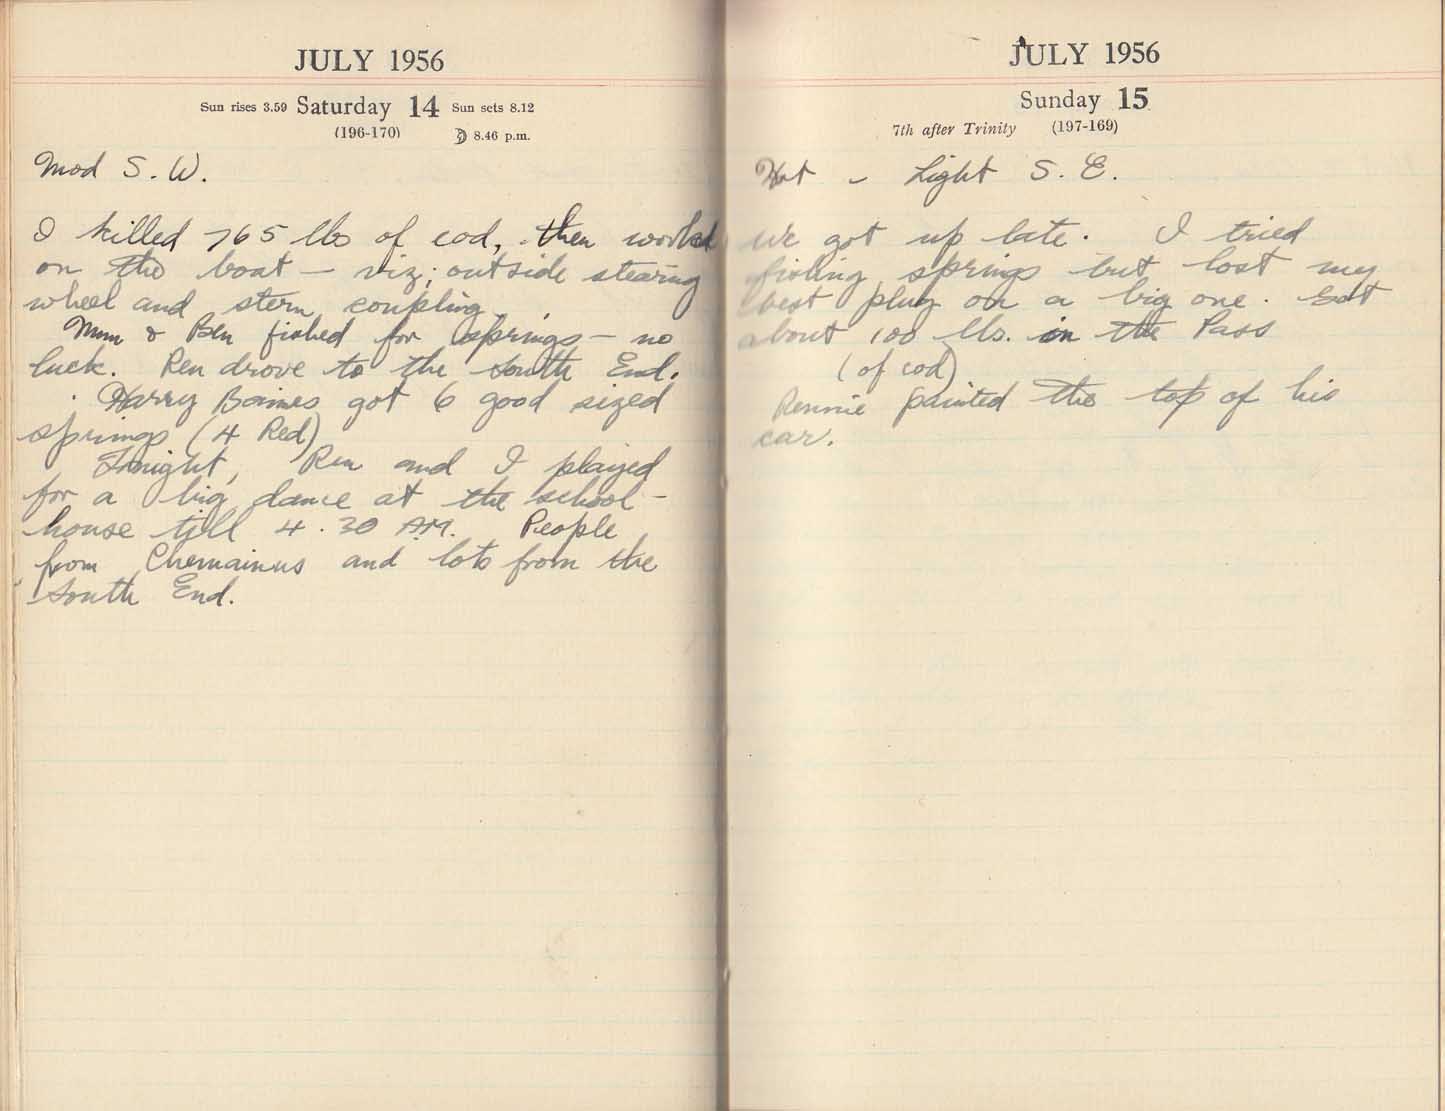 JULY 1956
Sun rises 3.59 Saturday 14 Sun sets 8.12
(196-170) 8.46 p.m.
Mod S. W.
I killed 765 lbs of cod, then worked
on the boat — viz; outside stearing
wheel and stern coupling.
Mum & Ben fished for springs — no
luck. Ren drove to the South End.
Harry Baines got 6 good sized
springs (4 Red)
Tonight, Ren and I played
for a big dance at the school-
house till 4.30 AM. People
from Chemainus and lots from the
South End.
JULY 1956
Sunday 15
7th after Trinity (197-169)
Hot - Light S. E.
We got up late. I tried
fishing springs but lost my
best plug on a big one. Got
about 100 lbs. in the Pass
(of cod)
Rennie painted the top of his
car.